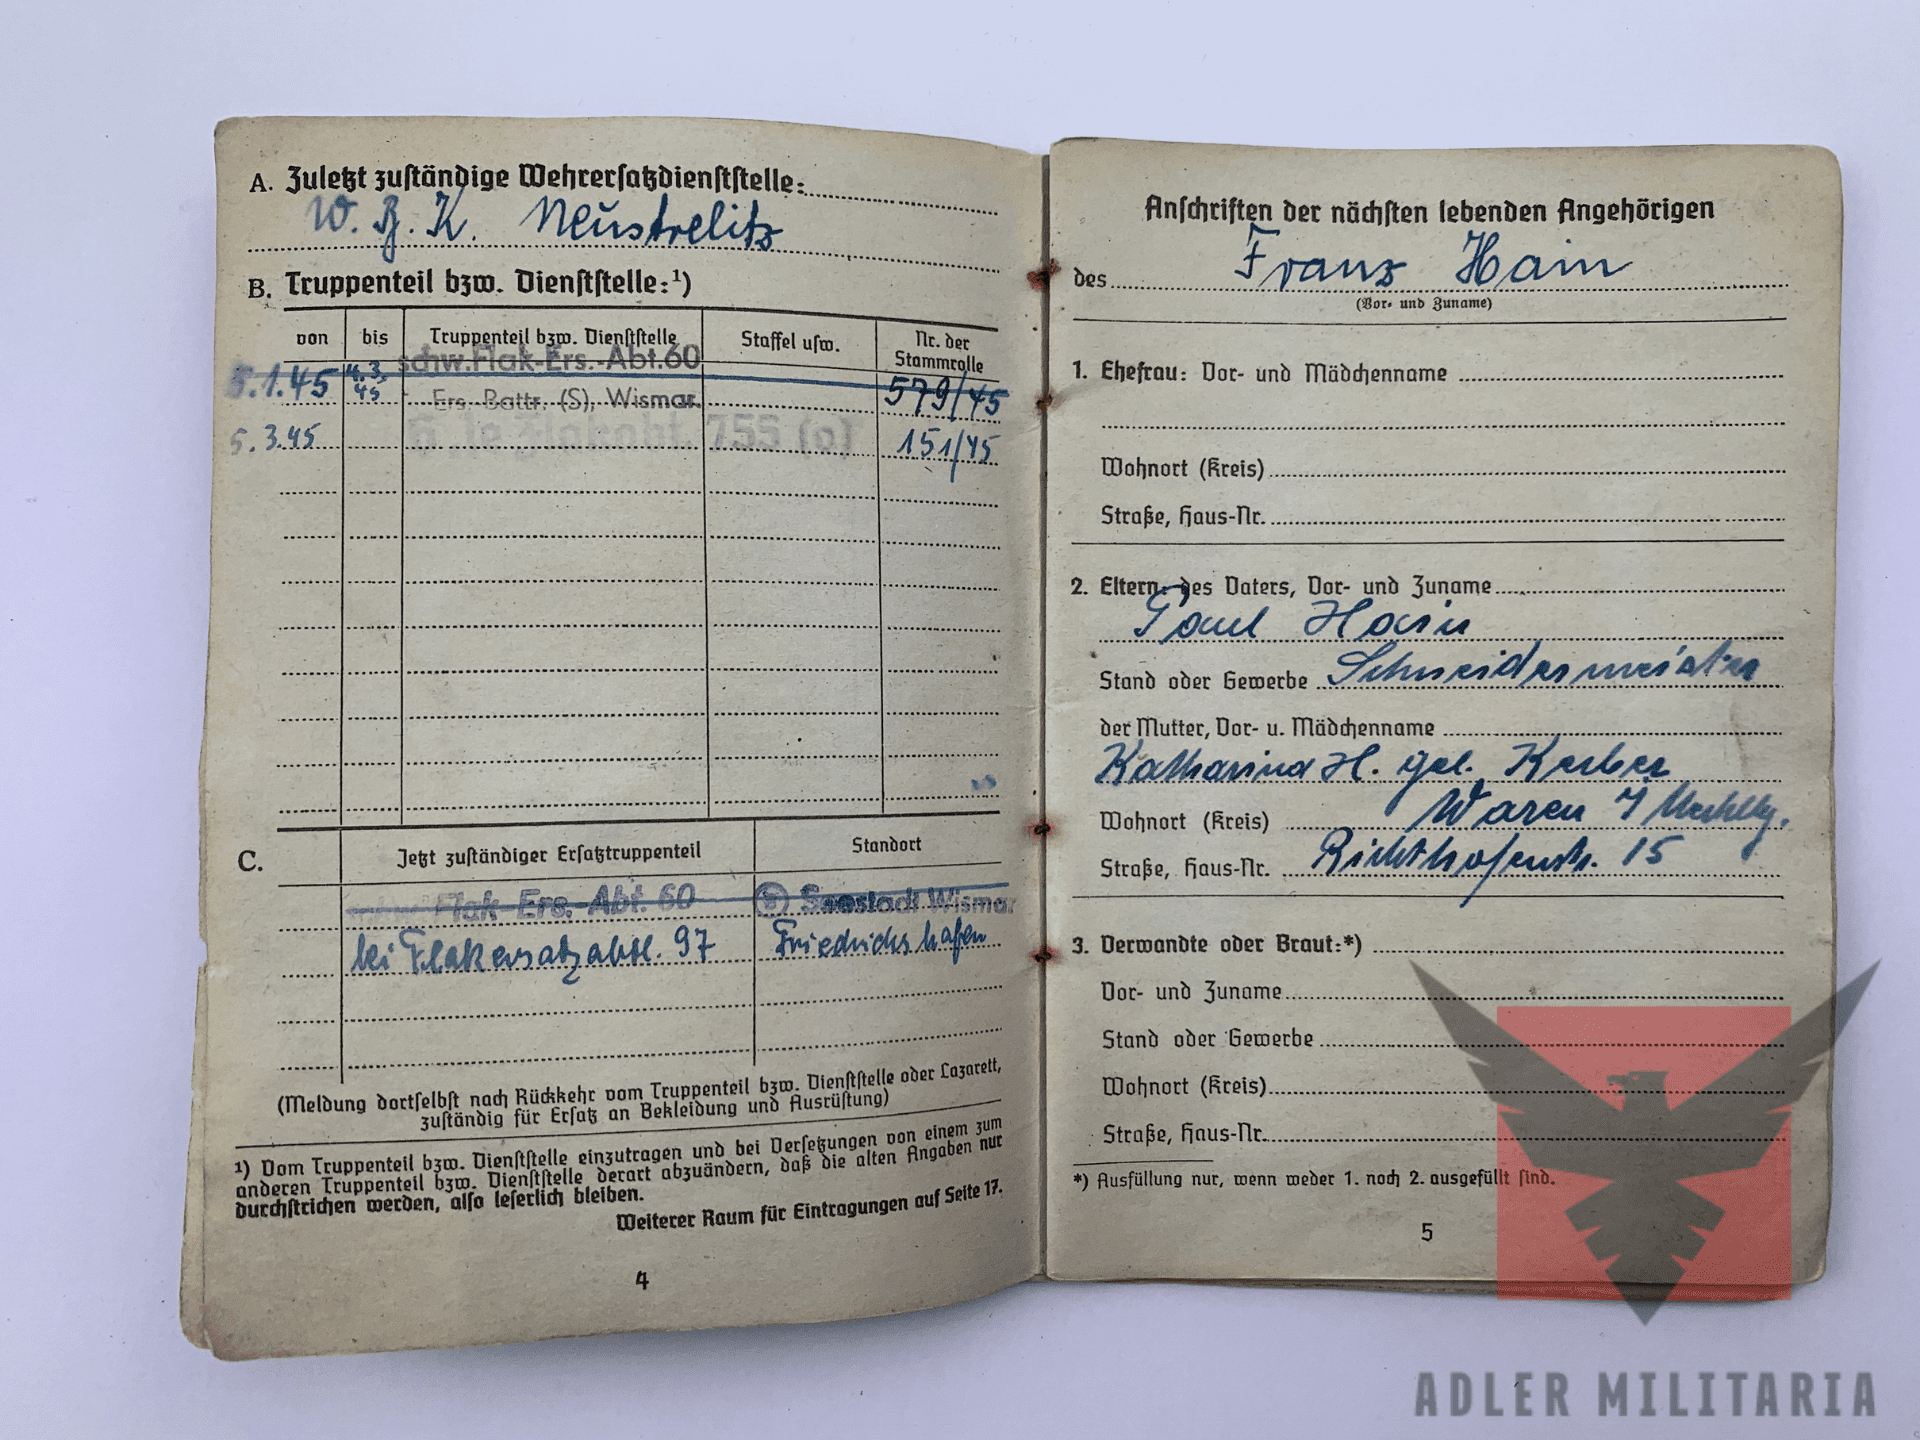 A. Zuletzt zuständige Wehrersatzdienststelle:
W. B. K. Neustrelitz
B. Truppenteil bzw. Dienststelle:¹)
von bis Truppenteil bzw. Dienststelle Staffel usw. Nr. der Stammrolle
5.1.45 4.3.45 schw. Flak-Ers.-Abt. 60 579/45
Ers. Battr. (S), Wismar.
5.3.45 Flakabt. 755 (o) 151/45
C. Jetzt zuständiger Ersatztruppenteil Standort
schw. Flak-Ers.-Abt. 60 Seestadt Wismar
bei Flakersatzabtl. 97 Friedrichshafen
(Meldung dortselbst nach Rückkehr vom Truppenteil bzw. Dienststelle oder Lazarett,
zuständig für Ersatz an Bekleidung und Ausrüstung)
¹) Vom Truppenteil bzw. Dienststelle einzutragen und bei Versetzungen von einem zum
anderen Truppenteil bzw. Dienststelle derart abzuändern, daß die alten Angaben nur
durchstrichen werden, also leserlich bleiben.
Weiterer Raum für Eintragungen auf Seite 17.
4
Anschriften der nächsten lebenden Angehörigen
des Franz Hain
(Vor- und Zuname)
1. Ehefrau: Vor- und Mädchenname
Wohnort (Kreis)
Straße, Haus-Nr.
2. Eltern: des Vaters, Vor- und Zuname
Paul Hain
Stand oder Gewerbe Schneidermeister
der Mutter, Vor- u. Mädchenname
Katharina H. geb. Kerber
Wohnort (Kreis) Waren
Straße, Haus-Nr. Richthofenstr. 15
3. Verwandte oder Braut:*)
Vor- und Zuname
Stand oder Gewerbe
Wohnort (Kreis)
Straße, Haus-Nr.
*) Ausfüllung nur, wenn weder 1. noch 2. ausgefüllt sind.
5
ADLER MILITARIA